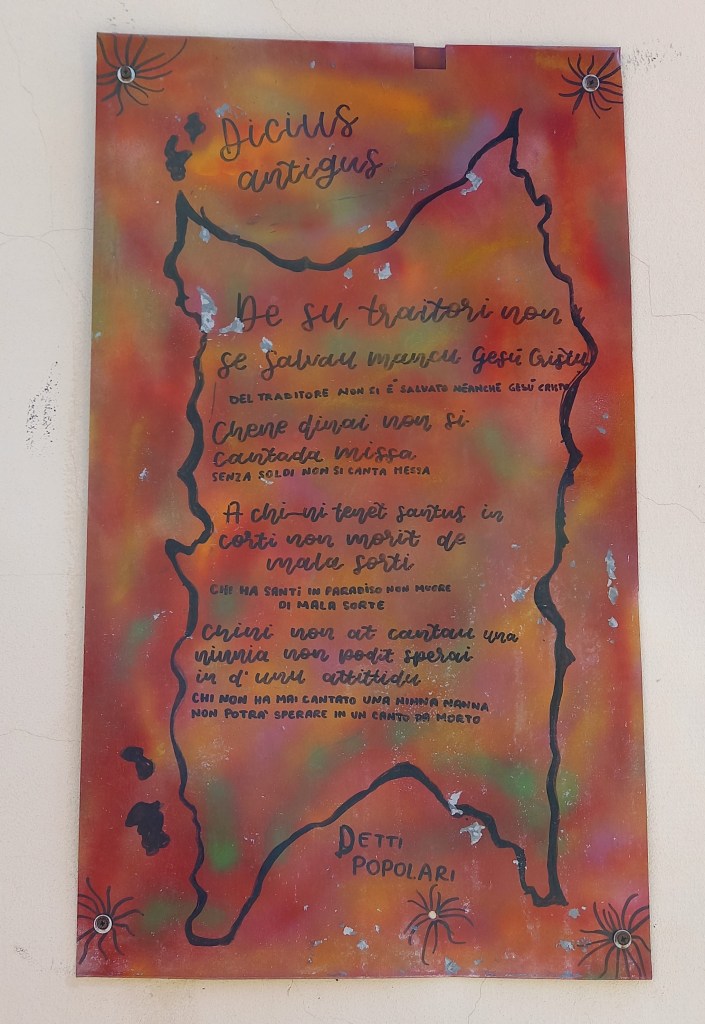 Dicius
antigus
De su traitori non
se salvau mancu Gesù Cristu
DEL TRADITORE NON SI È SALVATO NEANCHE GESÙ CRISTO
Chene dinai non si
cantada missa
SENZA SOLDI NON SI CANTA MESSA
A chi-ni tenet santus in
corti non morit de
mala sorti
CHI HA SANTI IN PARADISO NON MUORE
DI MALA SORTE
Chini non at cantau una
ninnia non podit sperai
in d'unu attittidu
CHI NON HA MAI CANTATO UNA NINNA NANNA
NON POTRA' SPERARE IN UN CANTO DA MORTO
DETTI
POPOLARI